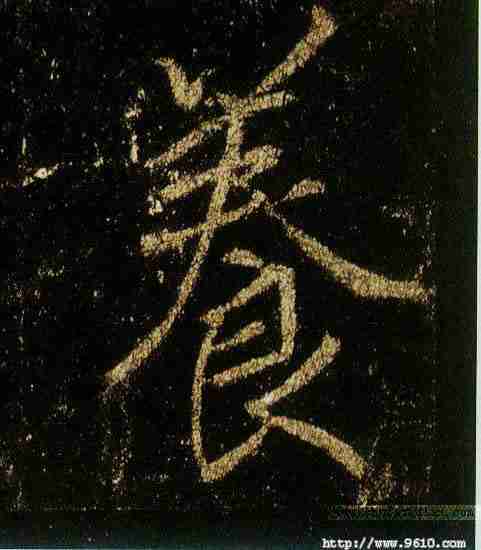 養
http://www.9610.com